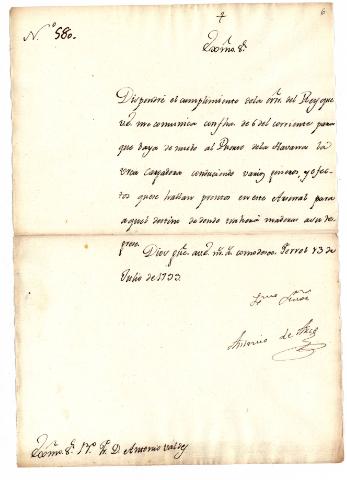 6
N.º 580.
Exmo. Sr.
Dispondré el cumplimiento de la orn. del Rey que
vd. me comunica con fha. de 6 del corriente para
que vaya de nuebo al Puerto de la Havana la
Urca Cargadora conduciendo varios generos, y efec-
tos que se hallan promtos en este Arsenal para
aquel destino de donde trahera maderas a su re-
greso.
Dios gue. a vd. ms. as. como deseo. Ferrol 13 de
Julio de
Exmo. Sor.
Antonio de Arce
Exmo. Sr. Bo. Fr. D. Antonio Valdes